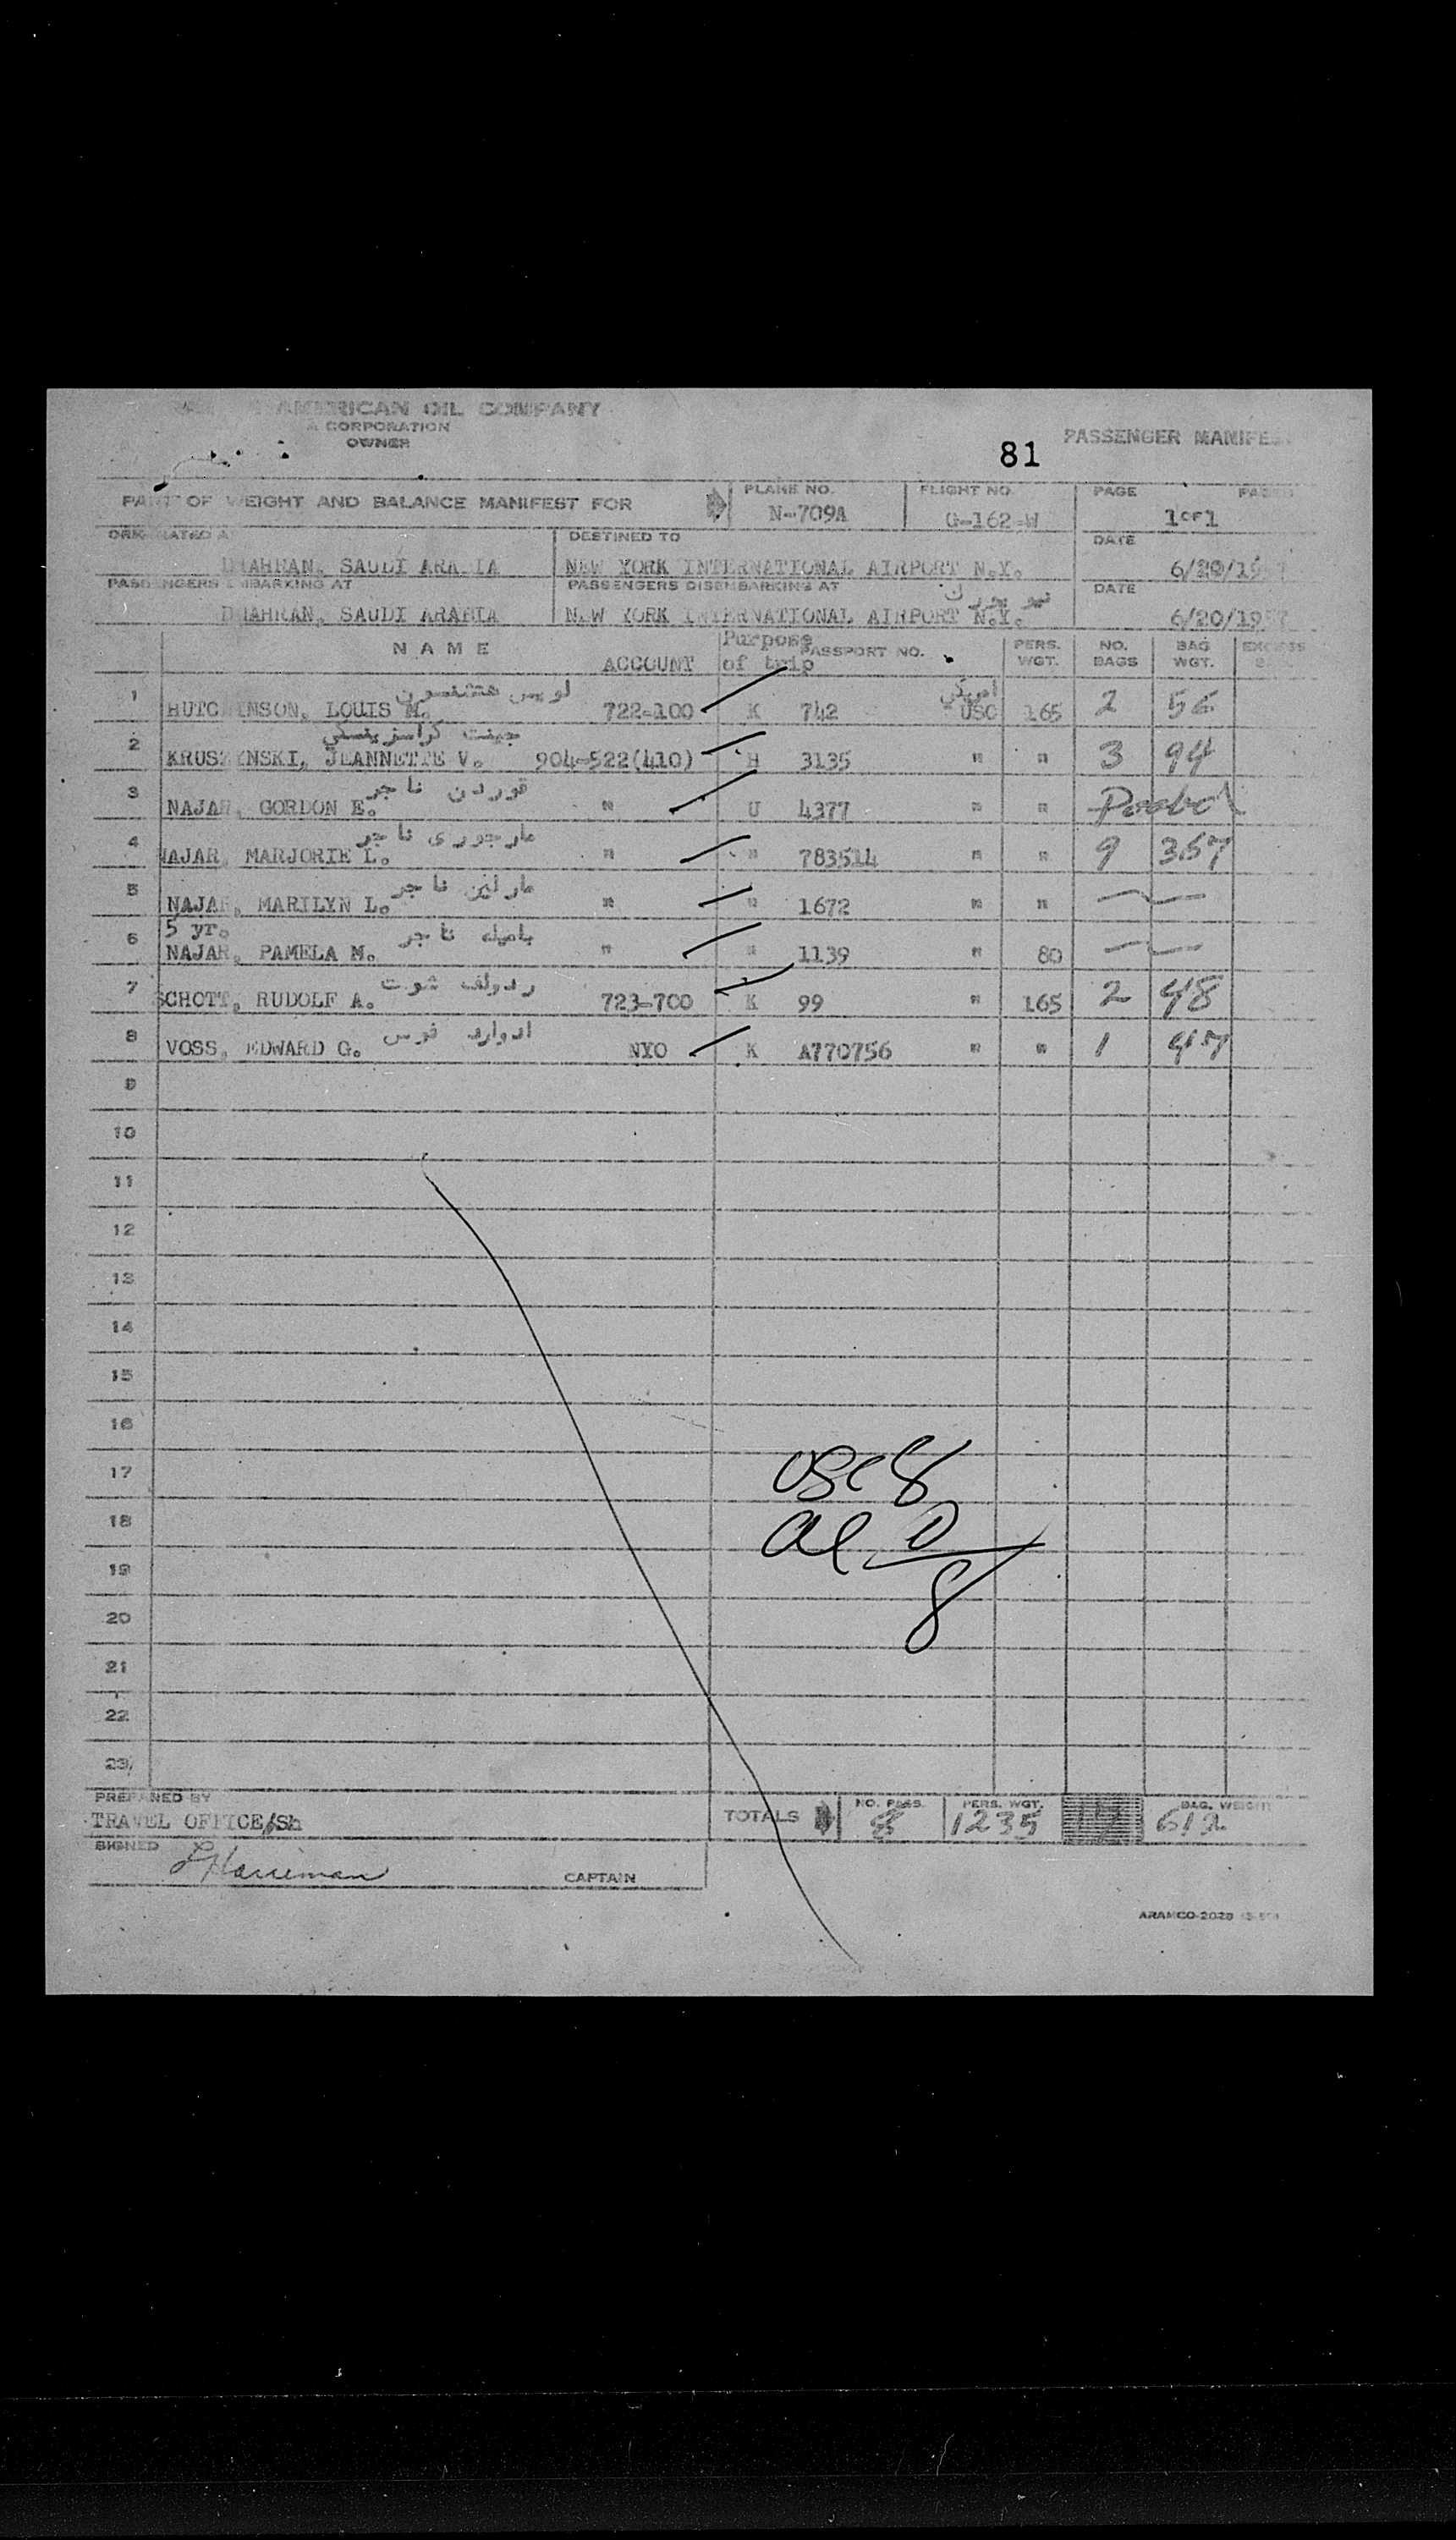 AMERICAN OIL COMPANY
A CORPORATION
OWNER
81
PASSENGER MANIFEST
PART OF WEIGHT AND BALANCE MANIFEST FOR
PLANE NO.
N-709A
FLIGHT NO.
G-162-W
PAGE PAGES
1 OF 1
ORIGINATED AT
DHAHRAN, SAUDI ARABIA
DESTINED TO
NEW YORK INTERNATIONAL AIRPORT N.Y.
DATE
6/20/19
PASSENGERS EMBARKING AT
DHAHRAN, SAUDI ARABIA
PASSENGERS DISEMBARKING AT
NEW YORK INTERNATIONAL AIRPORT N.Y.
DATE
6/20/1957
NAME ACCOUNT Purpose of trip PASSPORT NO. PERS. WGT. NO. BAGS BAG WGT. EXCESS
لويس هتشنسون امريكي
1 HUTCHINSON, LOUIS M. 722-100 K 742 USC 165 2 56
جينت كراسزينسكي
2 KRUSZYNSKI, JEANNETTE V. 904-522(410) H 3135 " " 3 94
قوردن ناجر
3 NAJAR, GORDON E. " U 4377 " "
مارجوري ناجر
4 NAJAR, MARJORIE L. " " 783514 " " 9 367
مارلين ناجر
5 NAJAR, MARILYN L. " " 1672 " "
5 yr. باميله ناجر
6 NAJAR, PAMELA M. " " 1139 " 80
ردولف شوت
7 SCHOTT, RUDOLF A. 723-700 K 99 " 165 2 48
ادوارد فوس
8 VOSS, EDWARD G. NYO K A770756 " " 1 47
9
10
11
12
13
14
15
16
17
18
19
20
21
22
23
USC 8
al 0
8
PREPARED BY
TRAVEL OFFICE/Sh
TOTALS
NO. PASS.
8
PERS. WGT.
1235
17
BAG. WEIGHT
612
SIGNED
LHarriman
CAPTAIN
ARAMCO-2028